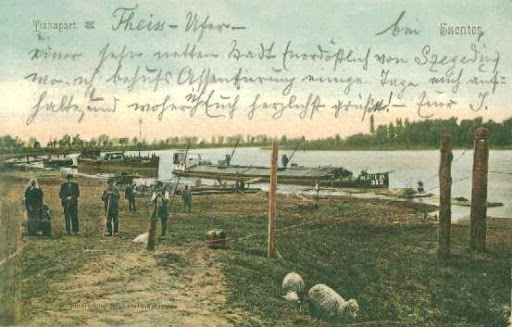 Tiszapart = Theiss-Ufer- bei Szentes
einer sehr netten Stadt (nordöstlich von Szegedin)
wo ich behufs Assentierung einige Tage mich auf-
halte, und woher ich Euch herzlichst grüße.- Euer J.